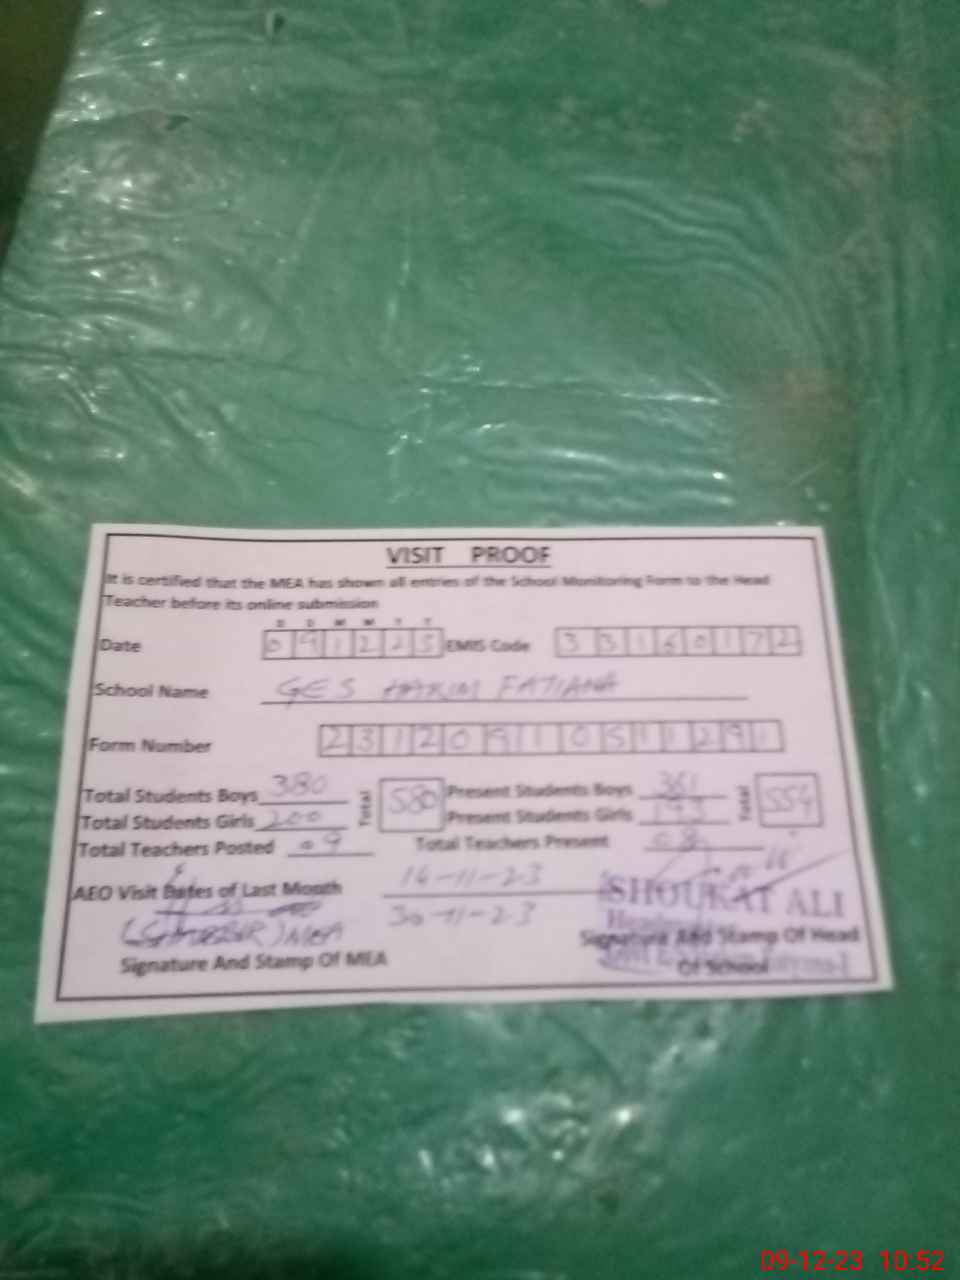 VISIT PROOF
It is certified that the MEA has shown all entries of the School Monitoring Form to the Head
Teacher before its online submission
D D M M Y Y
Date 0 9 1 2 2 3 EMIS Code 3 3 1 6 0 1 7 2
School Name GES HAKIM FATIANA
Form Number 2 3 1 2 0 9 1 0 5 1 1 2 9 1
Total Students Boys 380 Total 580 Present Students Boys 361 Total 554
Total Students Girls 200 Present Students Girls 193
Total Teachers Posted 09 Total Teachers Present 08
AEO Visit Dates of Last Month 14-11-23
30-11-23
SHOUKAT ALI
MEA
Signature And Stamp Of MEA
Signature And Stamp Of Head
Of School
09-12-23 10:52